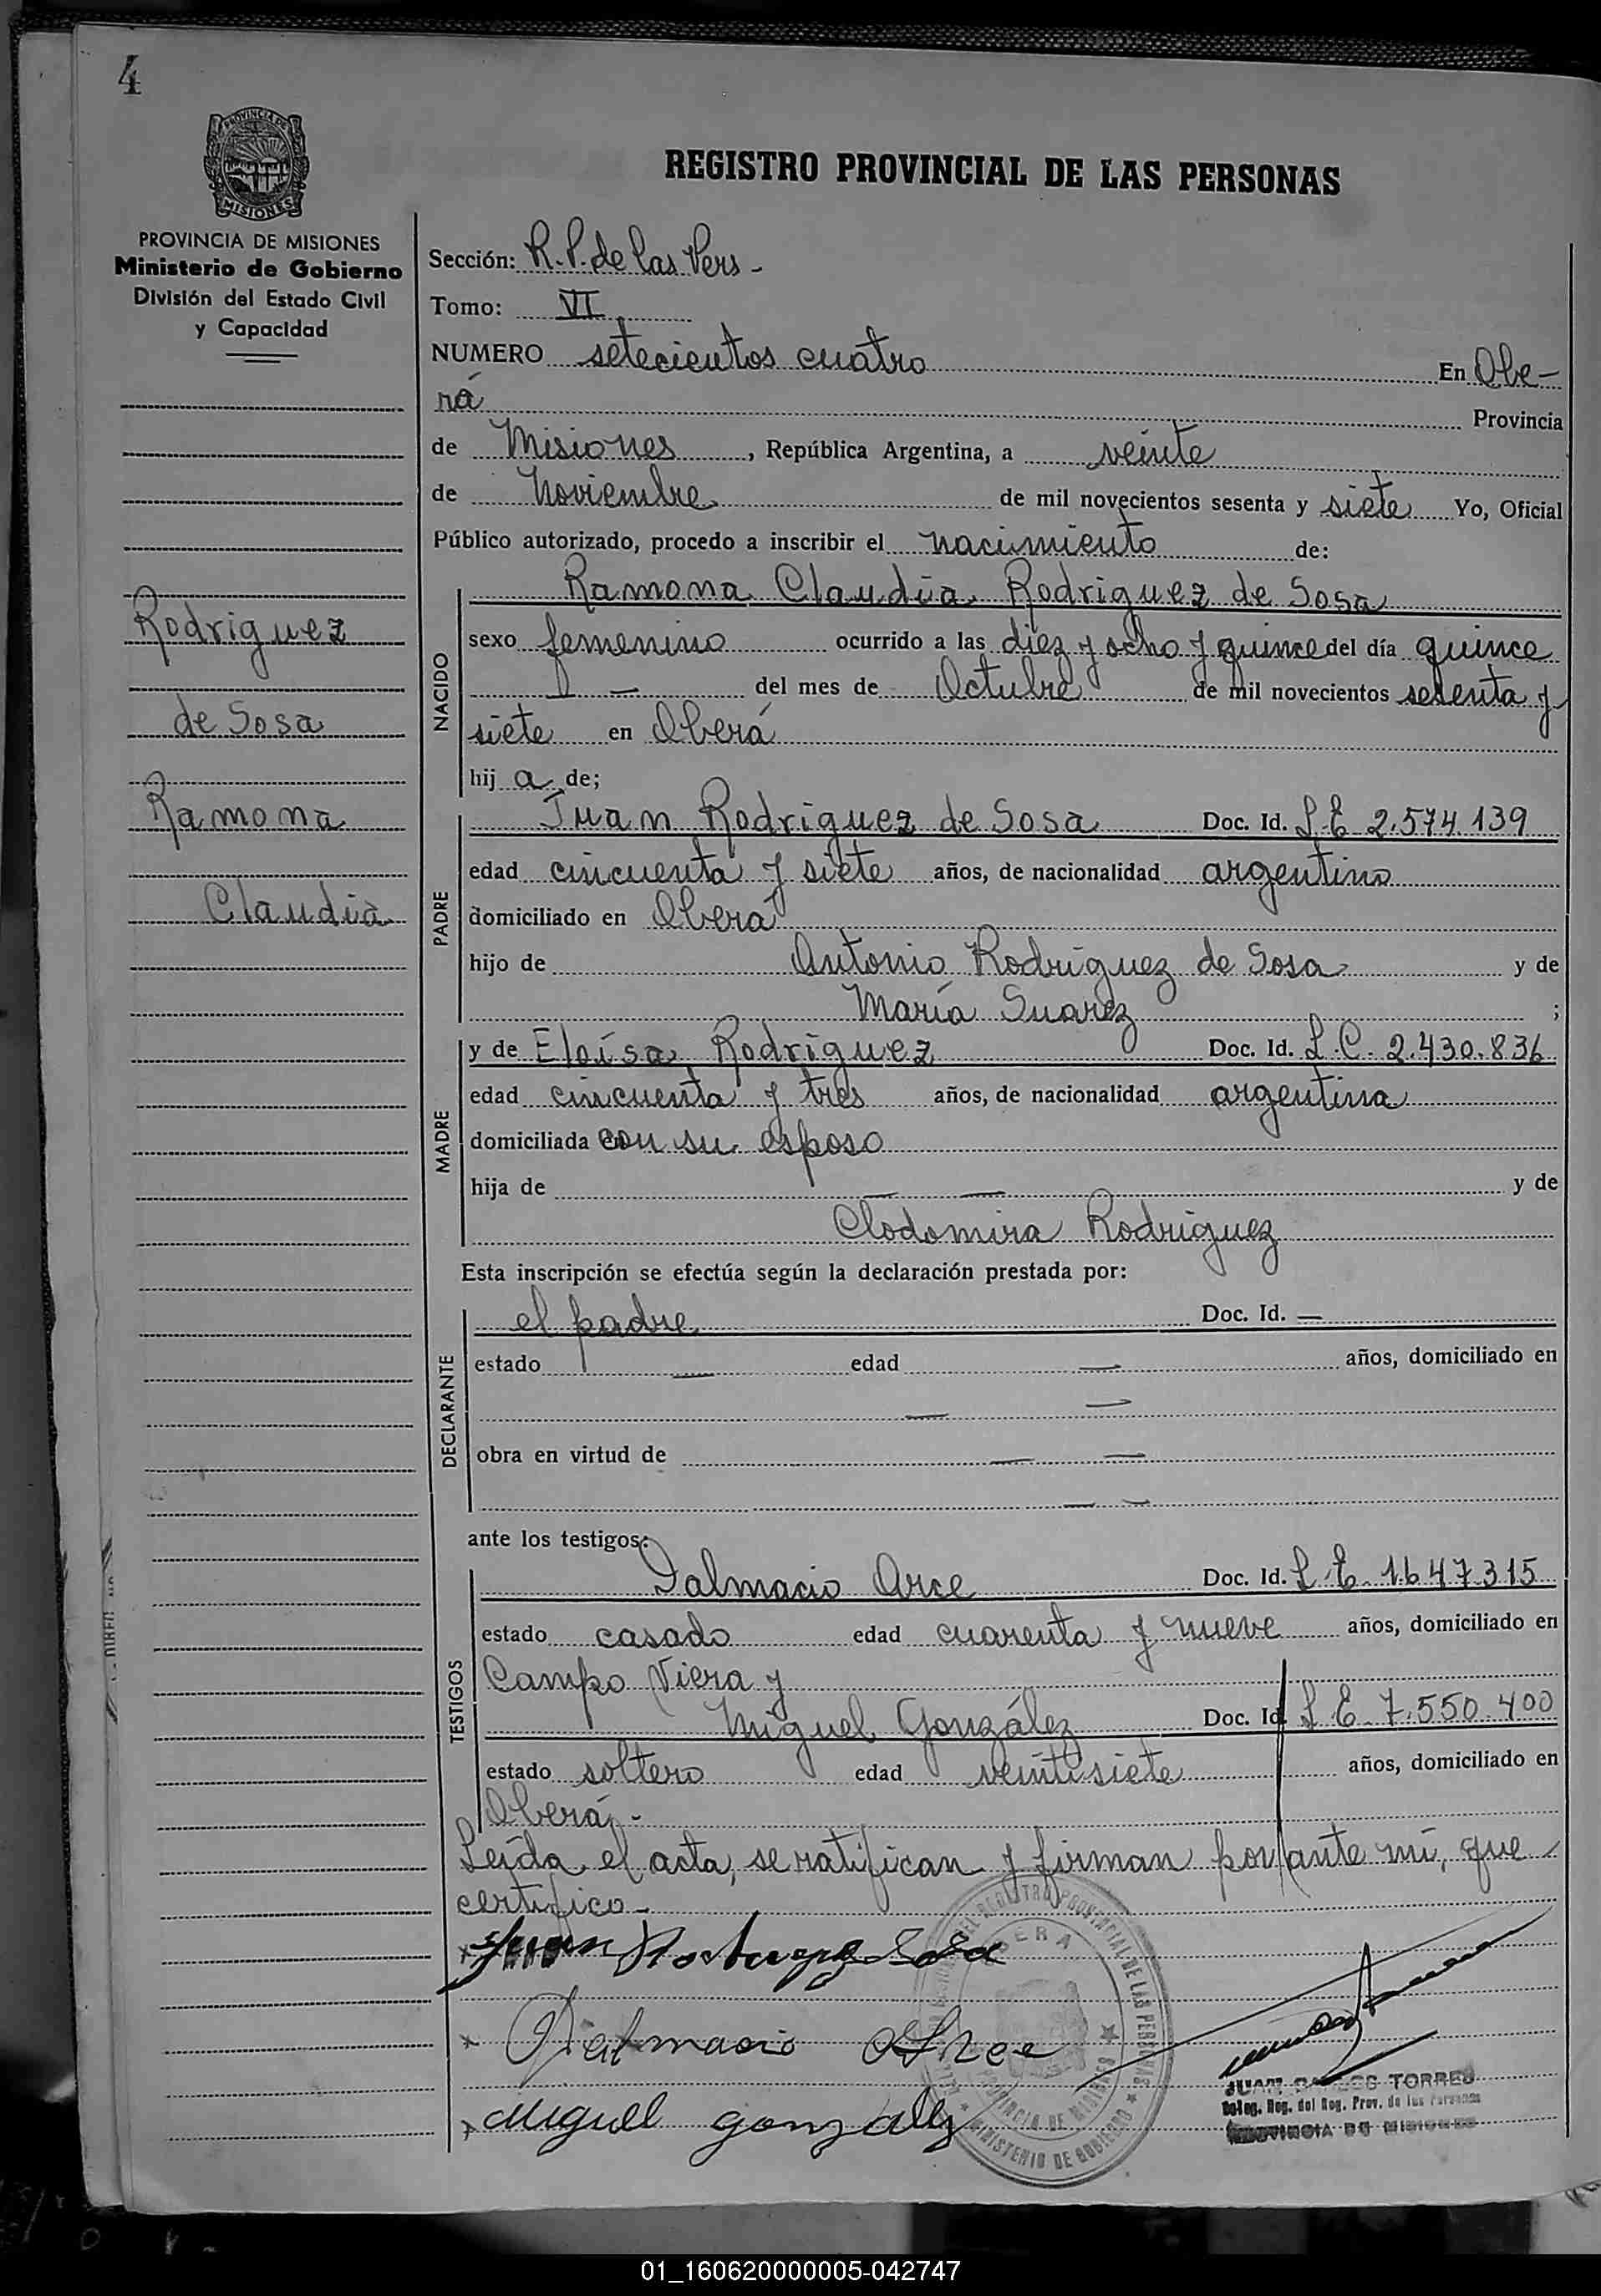 4
PROVINCIA DE
MISIONES
PROVINCIA DE MISIONES
Ministerio de Gobierno
División del Estado Civil
y Capacidad
Rodriguez
de Sosa
Ramona
Claudia
REGISTRO PROVINCIAL DE LAS PERSONAS
Sección: R.P. de las Pers -
Tomo: VI
NUMERO setecientos cuatro En Obe-
rá Provincia
de Misiones, República Argentina, a veinte
de Noviembre de mil novecientos sesenta y siete Yo, Oficial
Público autorizado, procedo a inscribir el nacimiento de:
NACIDO
Ramona Claudia Rodriguez de Sosa
sexo femenino ocurrido a las diez y ocho y quince del día quince
— del mes de Octubre de mil novecientos sesenta y
siete en Oberá
hij a de;
PADRE
Juan Rodriguez de Sosa Doc. Id. L E 2.574.139
edad cincuenta y siete años, de nacionalidad argentino
domiciliado en Oberá
hijo de Antonio Rodriguez de Sosa y de
María Suarez ;
MADRE
y de Eloísa Rodriguez Doc. Id. L.C. 2.430.836
edad cincuenta y tres años, de nacionalidad argentina
domiciliada con su esposo
hija de — — y de
Clodomira Rodriguez
Esta inscripción se efectúa según la declaración prestada por:
DECLARANTE
el padre Doc. Id. —
estado — edad — años, domiciliado en
— —
obra en virtud de — —
— —
ante los testigos:
TESTIGOS
Dalmacio Arce Doc. Id. L E. 1.647.315
estado casado edad cuarenta y nueve años, domiciliado en
Campo Viera y
Miguel González Doc. Id. L E. 7.550.400
estado soltero edad veintisiete años, domiciliado en
Oberá.-
Leída el acta, se ratifican y firman por ante mí, que
certifico -
x Juan Sosa
x Dalmacio Arce
x Miguel gonzalez
OBERA
PROVINCIA DE MISIONES
MINISTERIO DE GOBIERNO
JUAN CARLOS TORRES
Deleg. Reg. del Reg. Prov. de las Personas
PROVINCIA DE MISIONES
01_160620000005-042747